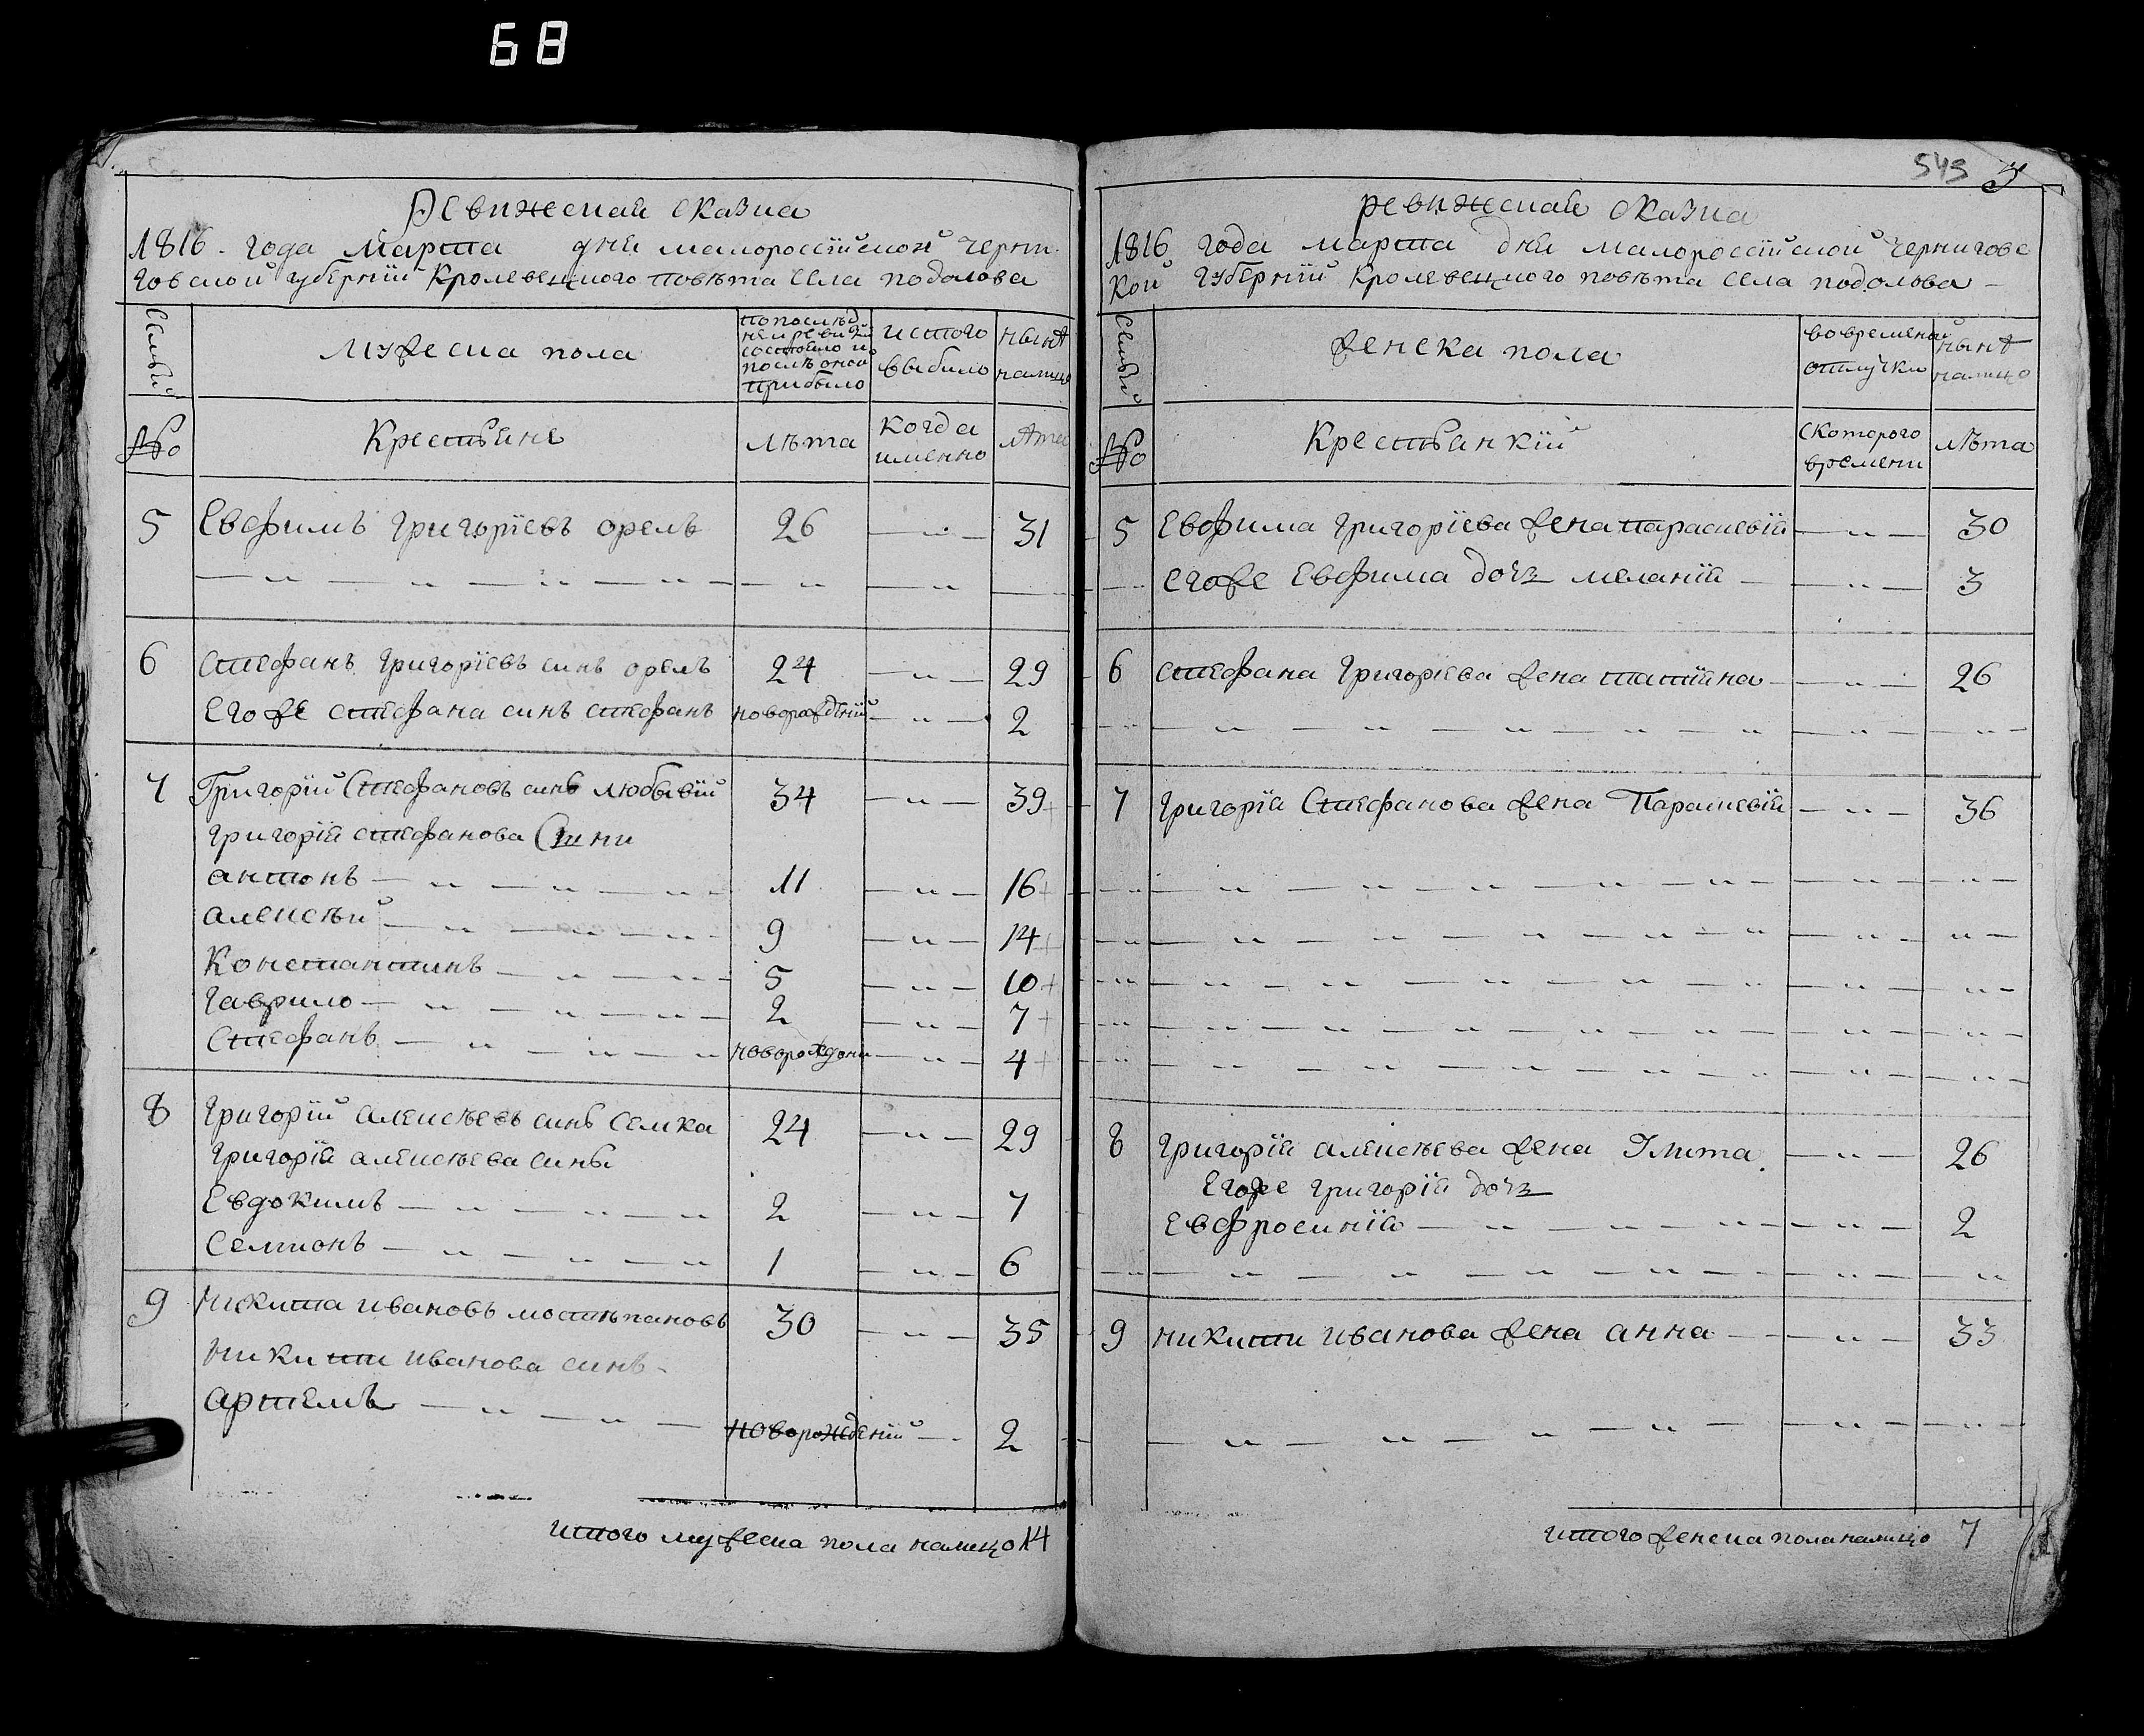 68
Ревижская сказка
1816. года Марта дня малороссійской Черни
говской губерніи Кролевецкого повѣта села подолова
Семьи
Мужеска пола
попослѣд
ней ревизіи
состояло и
послѣ оной
прибыло
изтого
выбыло
нынѣ
налицо
№
Крестьяне
лѣта
когда
именно
лѣта
5 Евфимъ Григоріевъ орелъ 26 31
6 Стефанъ Григоріевъ синъ орелъ 24 29
Егоже Стефана синъ Стефанъ новорожденій 2
7 Григорій Стефановъ синъ 34 39
Григорія Стефанова Сини
антонъ 11 16
алексѣй 9 14
Константинъ 5 10
Гаврило 2 7
Стефанъ новорождени 4
8 Григорій алексѣевъ синъ Семка 24 29
Григорія алексѣева сины
Евдокимъ 2 7
Семионъ 1 6
9 Никита ивановъ 30 35
Никити иванова синъ
артемъ новорожденій 2
итого мужеска пола налицо 14
545 3
ревижская сказка
1816 года марта дня малороссійской Чернигове
кой губерніи Кролевецкого повѣта села подолова
Семьи
женска пола
вовременной
отлучки
нынѣ
налицо
№
Крестьанкій
скоторого
времени
лѣта
5 Евфима Григоріева жена параскевія 30
егоже Евфима дочь меланія 3
6 Стефана Григоріева жена татіяна 26
7 Григорія Стефанова жена Параскевія 36
8 Григорія алексѣева жена Улита 26
Егоже Григорія дочь
Евфросинія 2
9 никити иванова жена анна 33
итого женска пола налицо 7